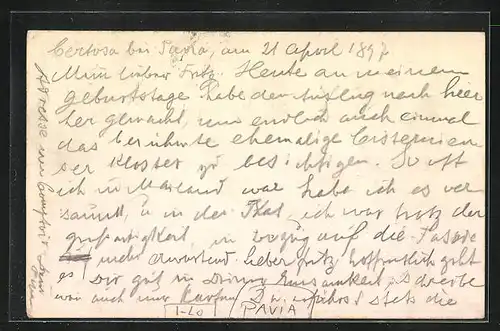 Certosa bei Pavia, am 21 April 1897
Mein lieber Fritz. Heute an meinem
Geburtstage habe den Ausflug nach hier
her gemacht, um endlich auch einmal
das berühmte ehemalige Cistercien
ser Kloster zu besichtigen. So oft
ich in Mailand war habe ich es ver
säumt, u in der That, ich war trotz der
großartigkeit, in bezug auf die Fassade
nicht erwartend lieber Fritz hoffentlich geht
es Dir gut in Deiner Einsamkeit. Schreibe
mir auch nur Karten, Du erfährst stets die
Adresse im Comptoir
I-LO PAVIA